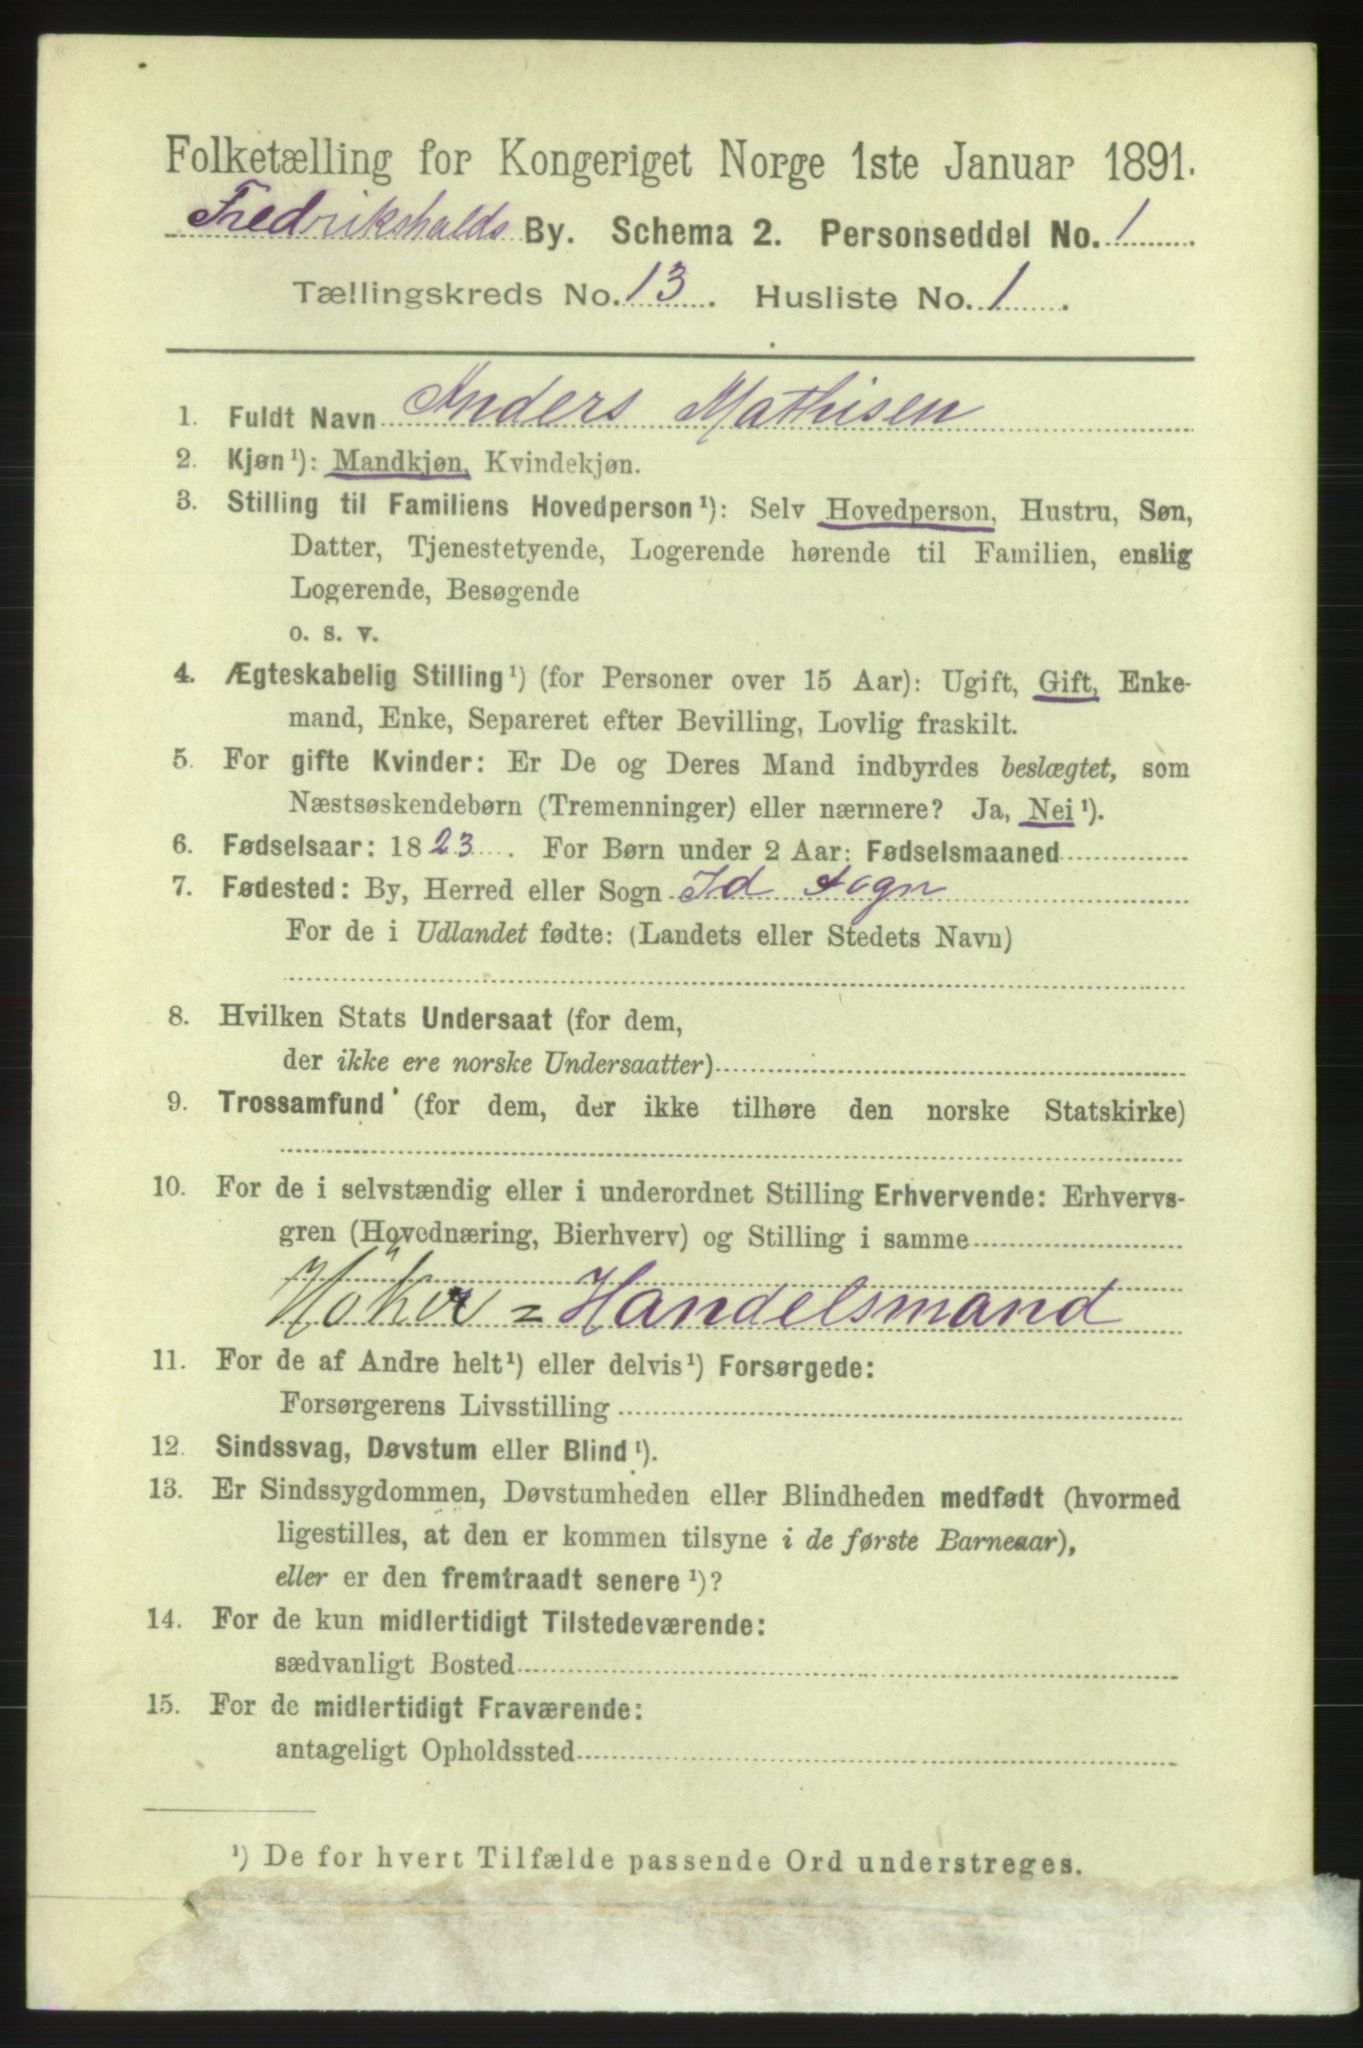 Folketælling for Kongeriget Norge 1ste Januar 1891.
Fredrikshalds By. Schema 2. Personseddel No. 1
Tællingskreds No. 13. Husliste No. 1.
1. Fuldt Navn Anders Mathisen
2. Kjøn¹): Mandkjøn, Kvindekjøn.
3. Stilling til Familiens Hovedperson¹): Selv Hovedperson, Hustru, Søn,
Datter, Tjenestetyende, Logerende hørende til Familien, enslig
Logerende, Besøgende
o. s. v.
4. Ægteskabelig Stilling¹) (for Personer over 15 Aar): Ugift, Gift, Enke-
mand, Enke, Separeret efter Bevilling, Lovlig fraskilt.
5. For gifte Kvinder: Er De og Deres Mand indbyrdes beslægtet, som
Næstsøskendebørn (Tremenninger) eller nærmere? Ja, Nei¹).
6. Fødselsaar: 1823. For Børn under 2 Aar: Fødselsmaaned
7. Fødested: By, Herred eller Sogn Id sogn
For de i Udlandet fødte: (Landets eller Stedets Navn)
8. Hvilken Stats Undersaat (for dem,
der ikke ere norske Undersaatter)
9. Trossamfund (for dem, der ikke tilhøre den norske Statskirke)
10. For de i selvstændig eller i underordnet Stilling Erhvervende: Erhvervs-
gren (Hovednæring, Bierhverv) og Stilling i samme
Höker = Handelsmand
11. For de af Andre helt¹) eller delvis¹) Forsørgede:
Forsørgerens Livsstilling
12. Sindssvag, Døvstum eller Blind¹).
13. Er Sindssygdommen, Døvstumheden eller Blindheden medfødt (hvormed
ligestilles, at den er kommen tilsyne i de første Barneaar),
eller er den fremtraadt senere¹)?
14. For de kun midlertidigt Tilstedeværende:
sædvanligt Bosted
15. For de midlertidigt Fraværende:
antageligt Opholdssted
¹) De for hvert Tilfælde passende Ord understreges.